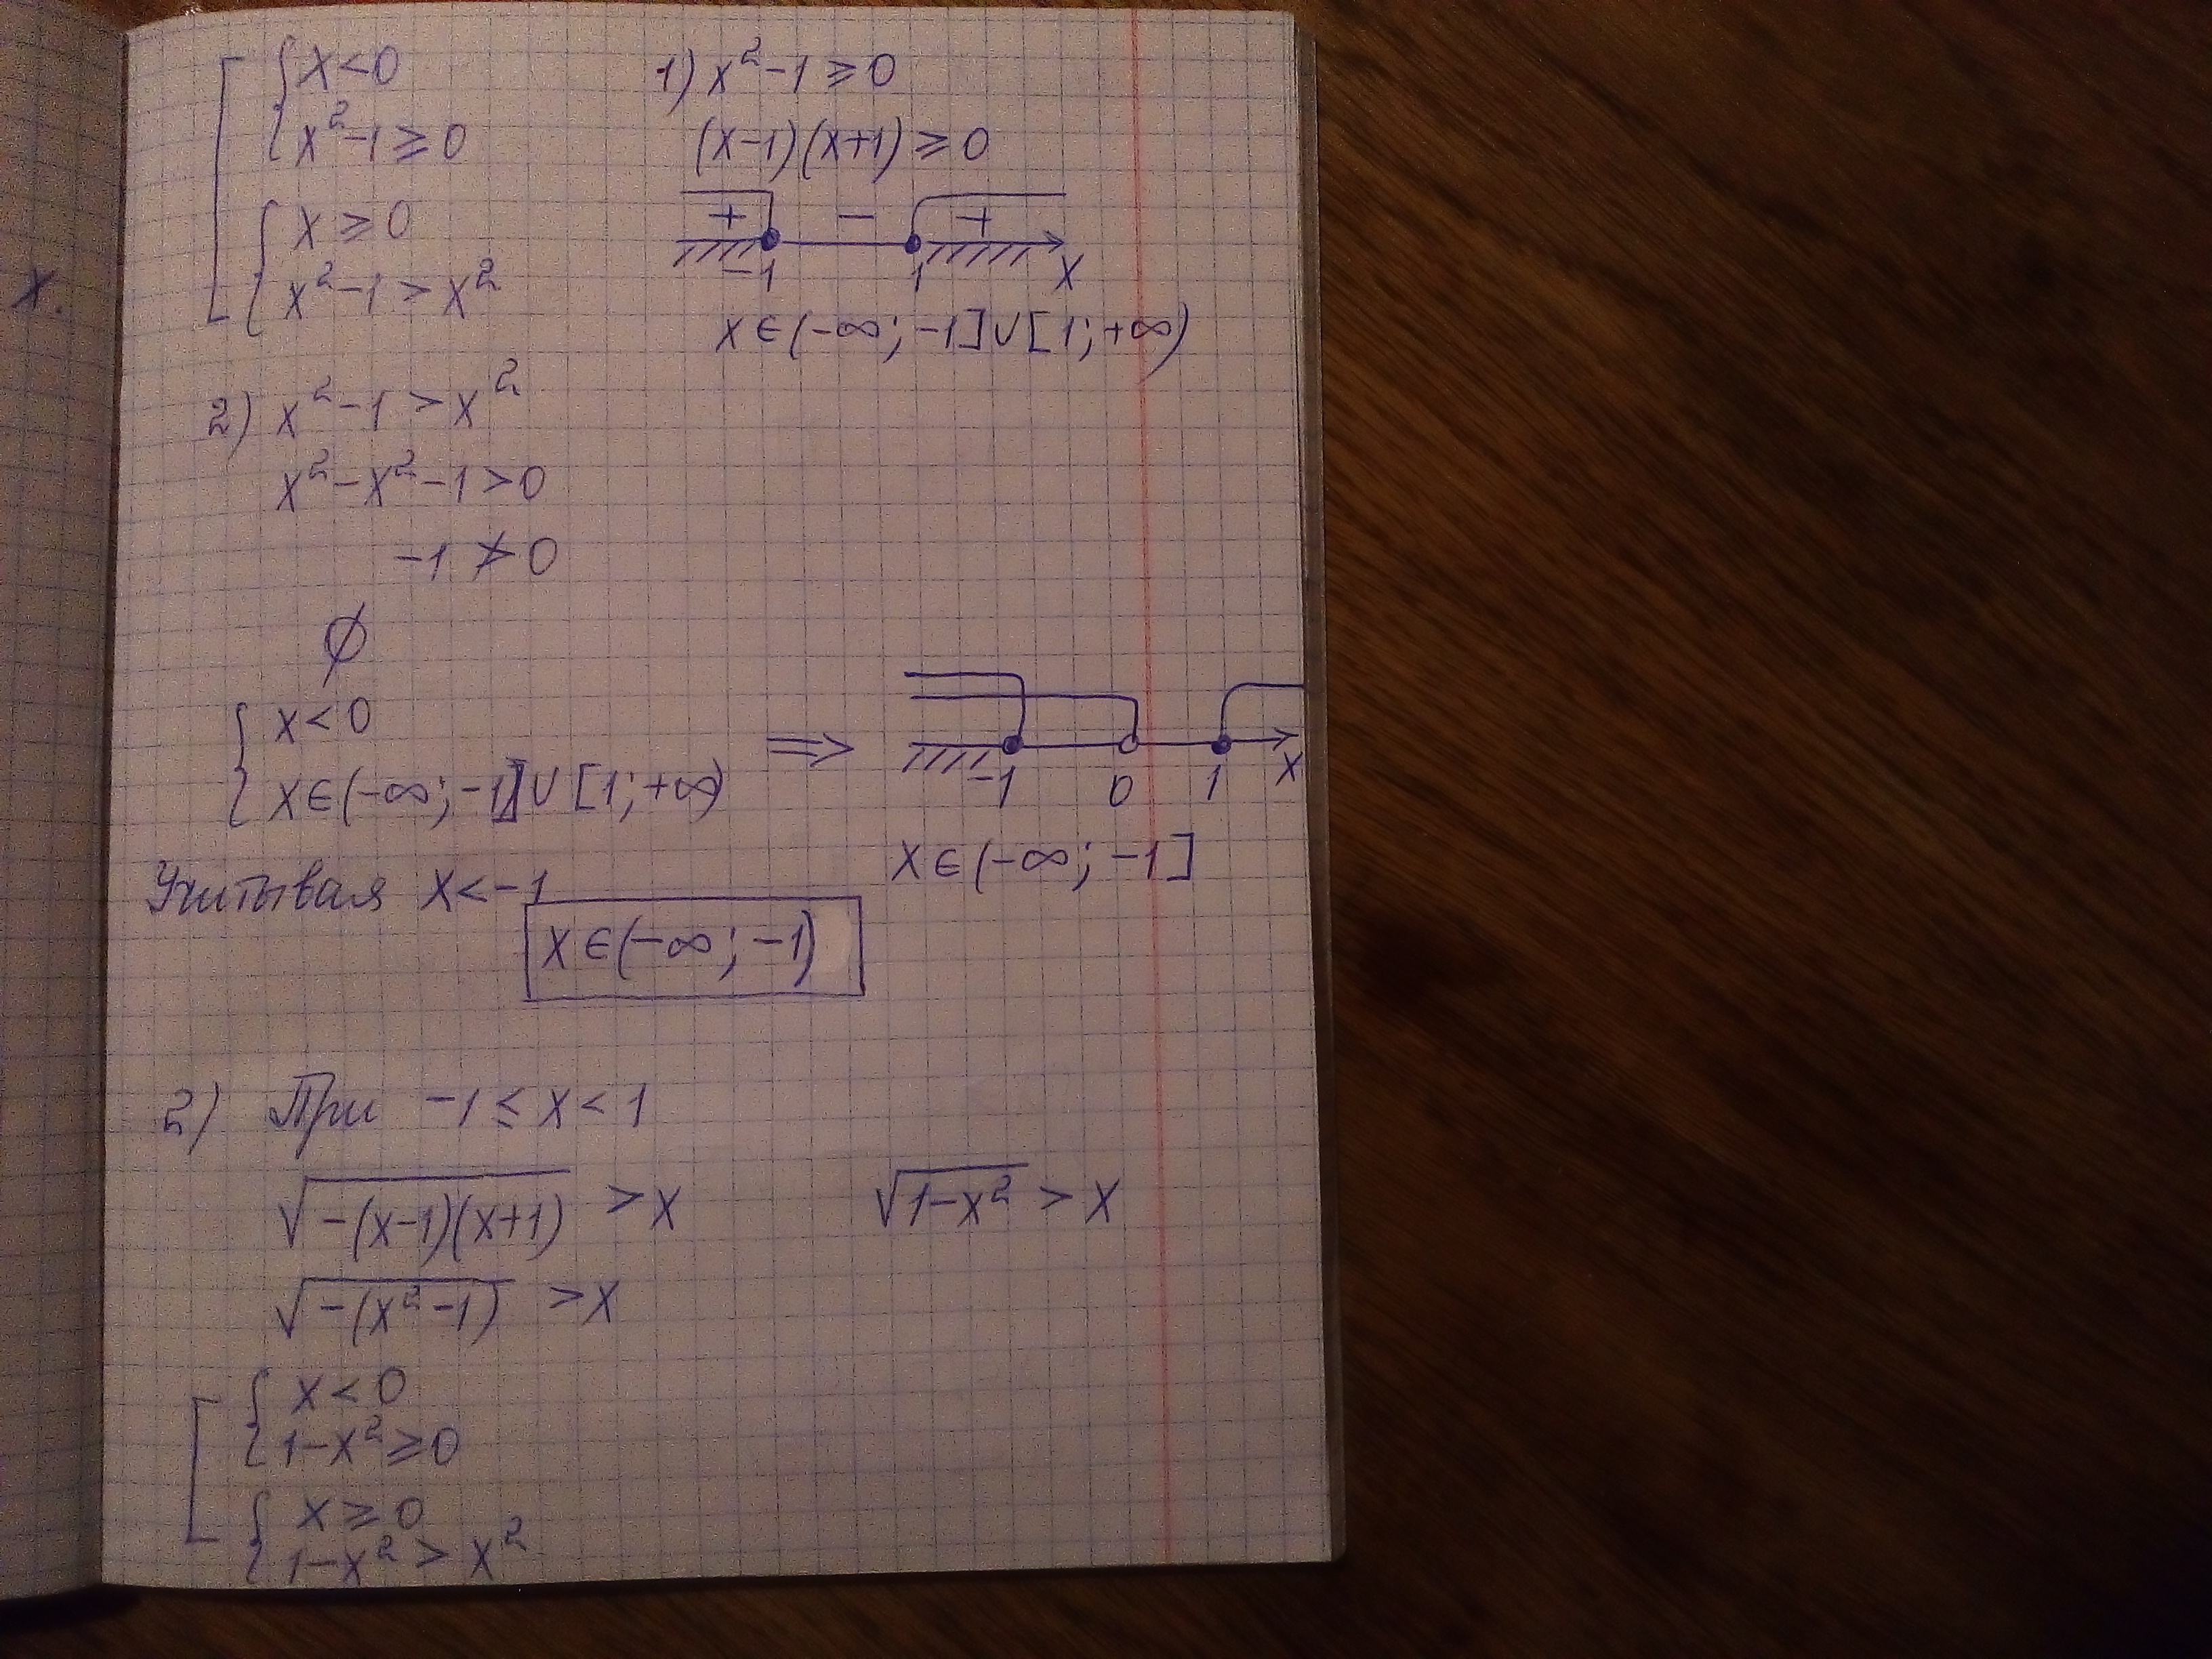 x.
x < 0
x² - 1 ≥ 0
x ≥ 0
x² - 1 > x²
1) x² - 1 ≥ 0
(x-1)(x+1) ≥ 0
+ - +
-1 1 x
x ∈ (-∞; -1] ∪ [1; +∞)
2) x² - 1 > x²
x² - x² - 1 > 0
-1 ≯ 0
∅
x < 0
x ∈ (-∞; -1] ∪ [1; +∞)
⇒
-1 0 1 x
x ∈ (-∞; -1]
Учитывая x < -1
x ∈ (-∞; -1)
2) При -1 ≤ x < 1
√(-(x-1)(x+1)) > x
√(1-x²) > x
√(-(x²-1)) > x
x < 0
1 - x² ≥ 0
x ≥ 0
1 - x² > x²